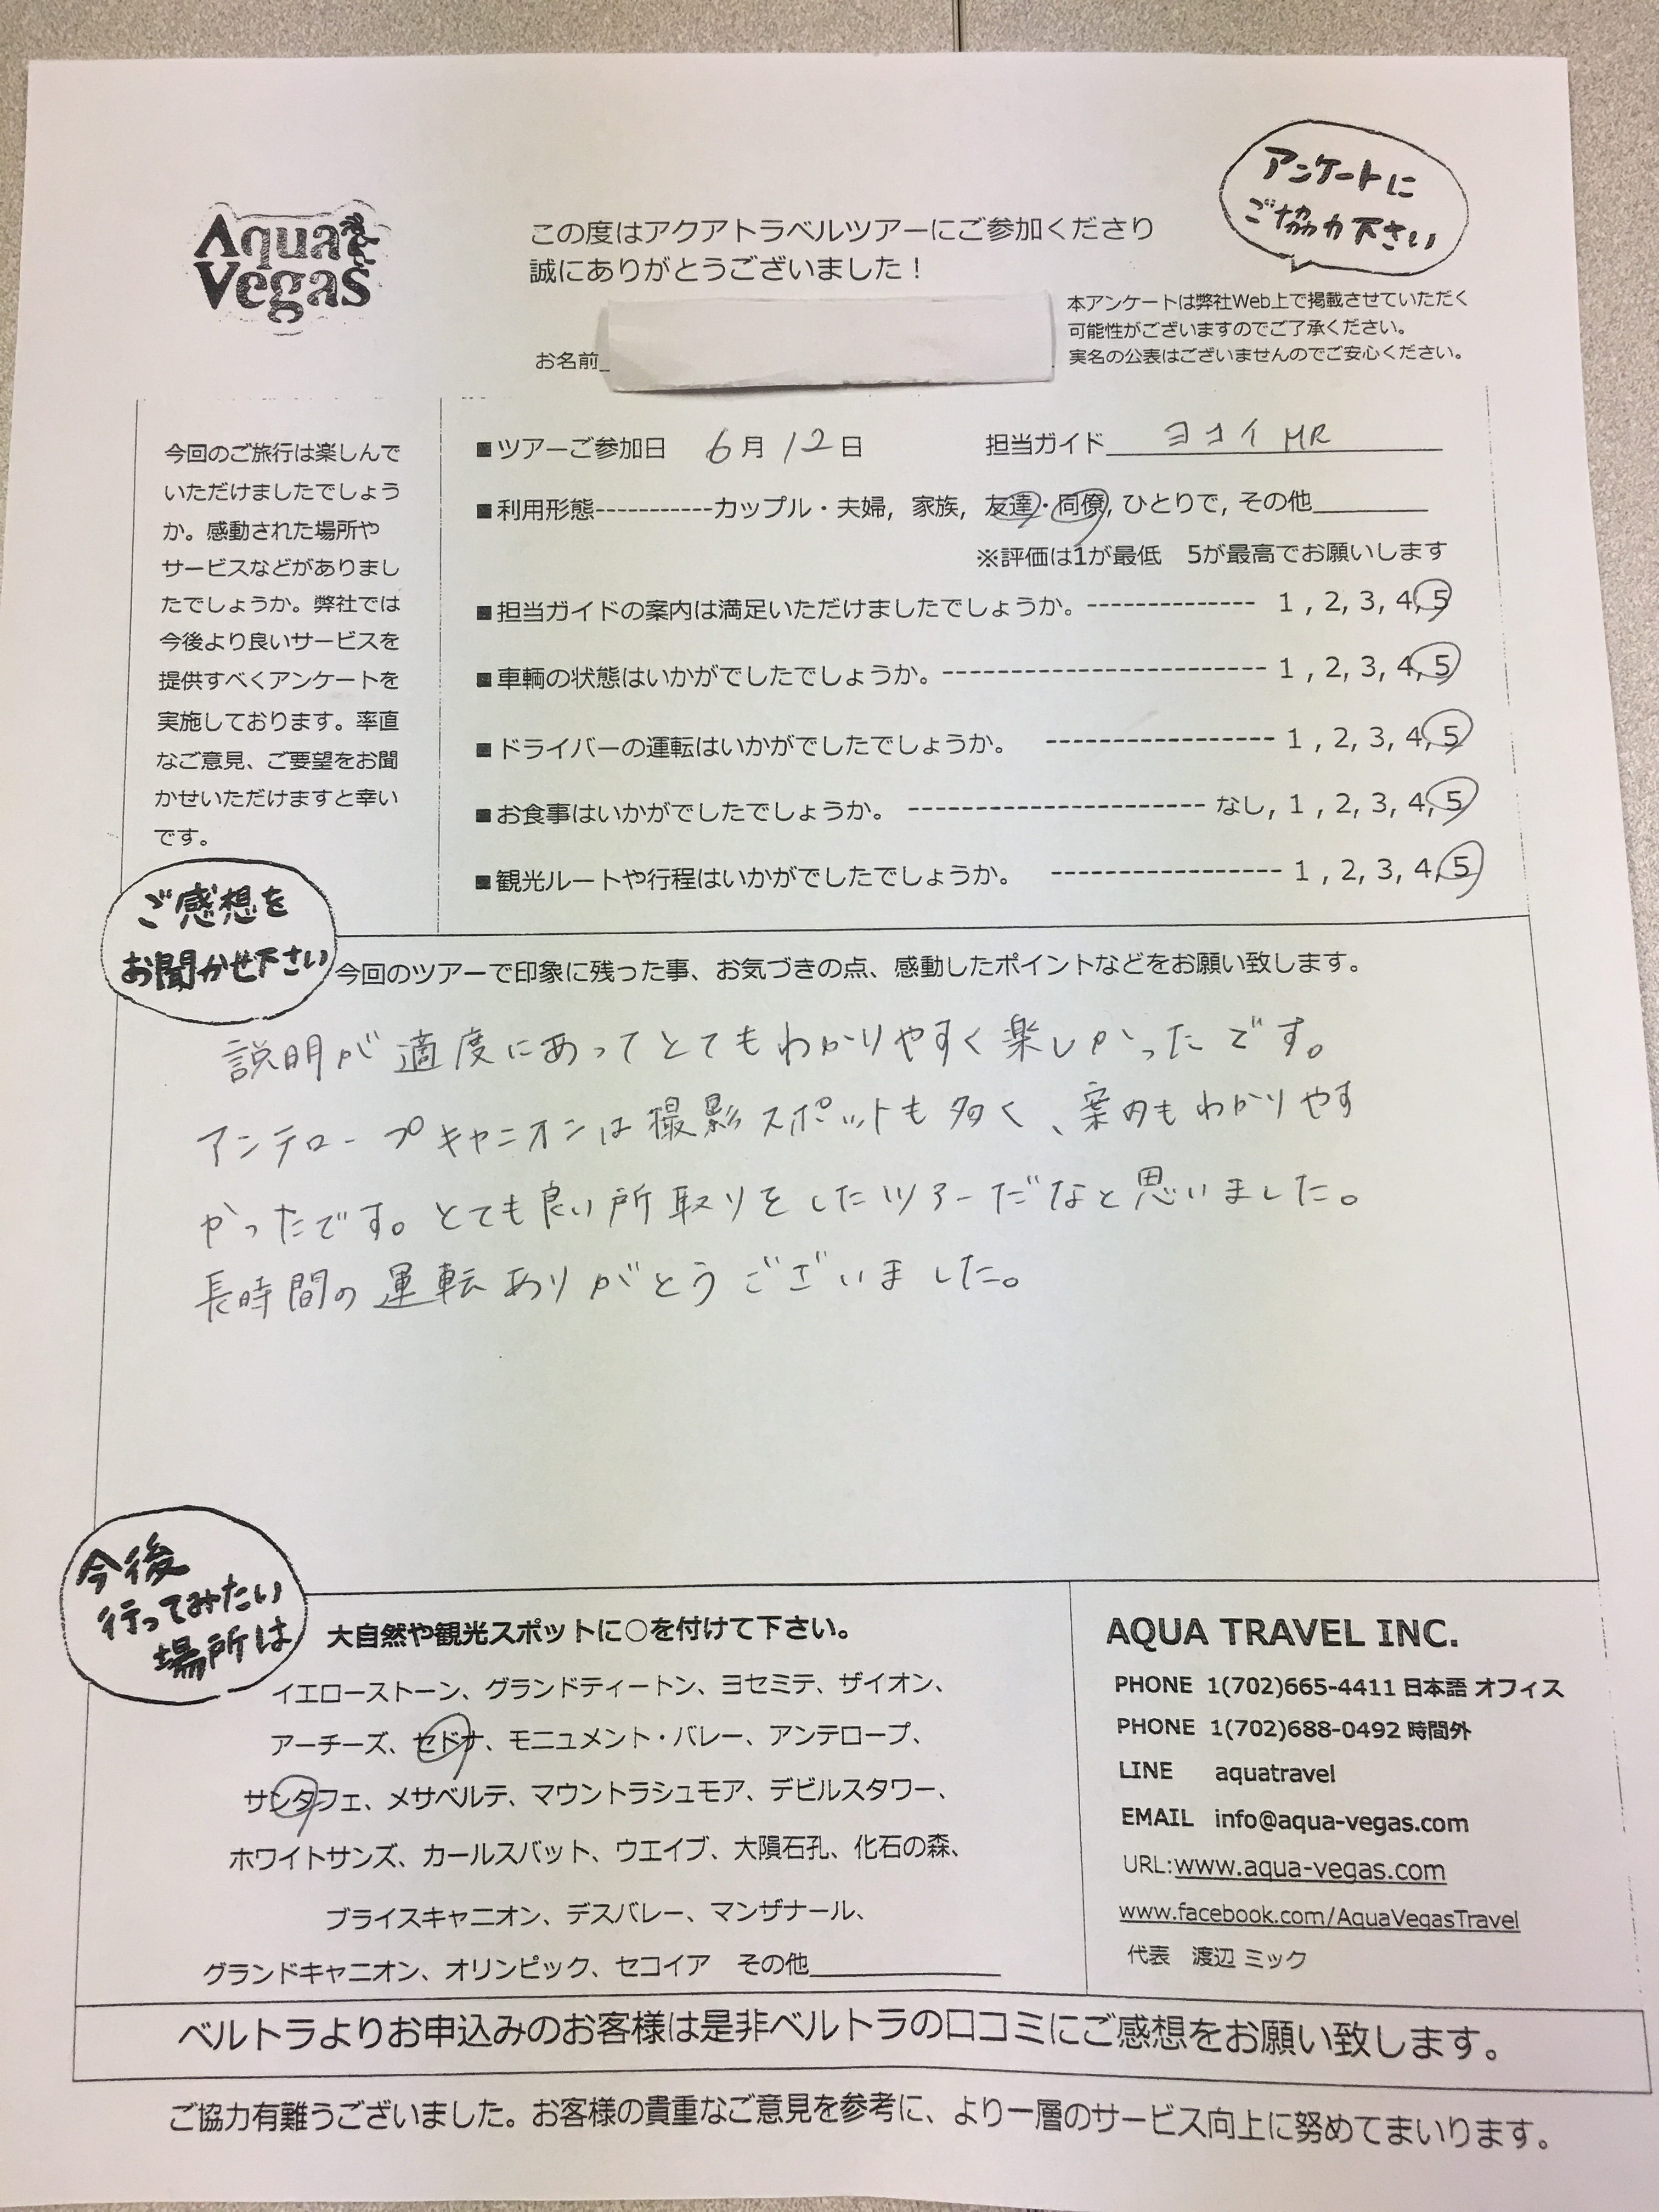 アンケートに
ご協力下さい
Aqua
Vegas
この度はアクアトラベルツアーにご参加くださり
誠にありがとうございました！
お名前
本アンケートは弊社Web上で掲載させていただく
可能性がございますのでご了承ください。
実名の公表はございませんのでご安心ください。
今回のご旅行は楽しんで
いただけましたでしょう
か。感動された場所や
サービスなどがありまし
たでしょうか。弊社では
今後より良いサービスを
提供すべくアンケートを
実施しております。率直
なご意見、ご要望をお聞
かせいただけますと幸い
です。
■ツアーご参加日 6月12日 担当ガイド ヨコイ MR
■利用形態-----------カップル・夫婦, 家族, 友達・同僚, ひとりで, その他
※評価は1が最低 5が最高でお願いします
■担当ガイドの案内は満足いただけましたでしょうか。-------------- 1 , 2, 3, 4, 5
■車輌の状態はいかがでしたでしょうか。--------------------------- 1 , 2, 3, 4, 5
■ドライバーの運転はいかがでしたでしょうか。 ------------------- 1 , 2, 3, 4, 5
■お食事はいかがでしたでしょうか。 ------------------------ なし, 1 , 2, 3, 4, 5
■観光ルートや行程はいかがでしたでしょうか。 ------------------- 1 , 2, 3, 4, 5
ご感想を
お聞かせ下さい
今回のツアーで印象に残った事、お気づきの点、感動したポイントなどをお願い致します。
説明が適度にあってとてもわかりやすく楽しかったです。
アンテロープキャニオンは撮影スポットも多く、案内もわかりやす
かったです。とても良い所取りをしたツアーだなと思いました。
長時間の運転ありがとうございました。
今後
行ってみたい
場所は
大自然や観光スポットに○を付けて下さい。
イエローストーン、グランドティートン、ヨセミテ、ザイオン、
アーチーズ、セドナ、モニュメント・バレー、アンテロープ、
サンタフェ、メサベルテ、マウントラシュモア、デビルスタワー、
ホワイトサンズ、カールスバット、ウエイブ、大隕石孔、化石の森、
ブライスキャニオン、デスバレー、マンザナール、
グランドキャニオン、オリンピック、セコイア その他
AQUA TRAVEL INC.
PHONE 1(702)665-4411 日本語 オフィス
PHONE 1(702)688-0492 時間外
LINE aquatravel
EMAIL info@aqua-vegas.com
URL:www.aqua-vegas.com
www.facebook.com/AquaVegasTravel
代表 渡辺 ミック
ベルトラよりお申込みのお客様は是非ベルトラの口コミにご感想をお願い致します。
ご協力有難うございました。お客様の貴重なご意見を参考に、より一層のサービス向上に努めてまいります。